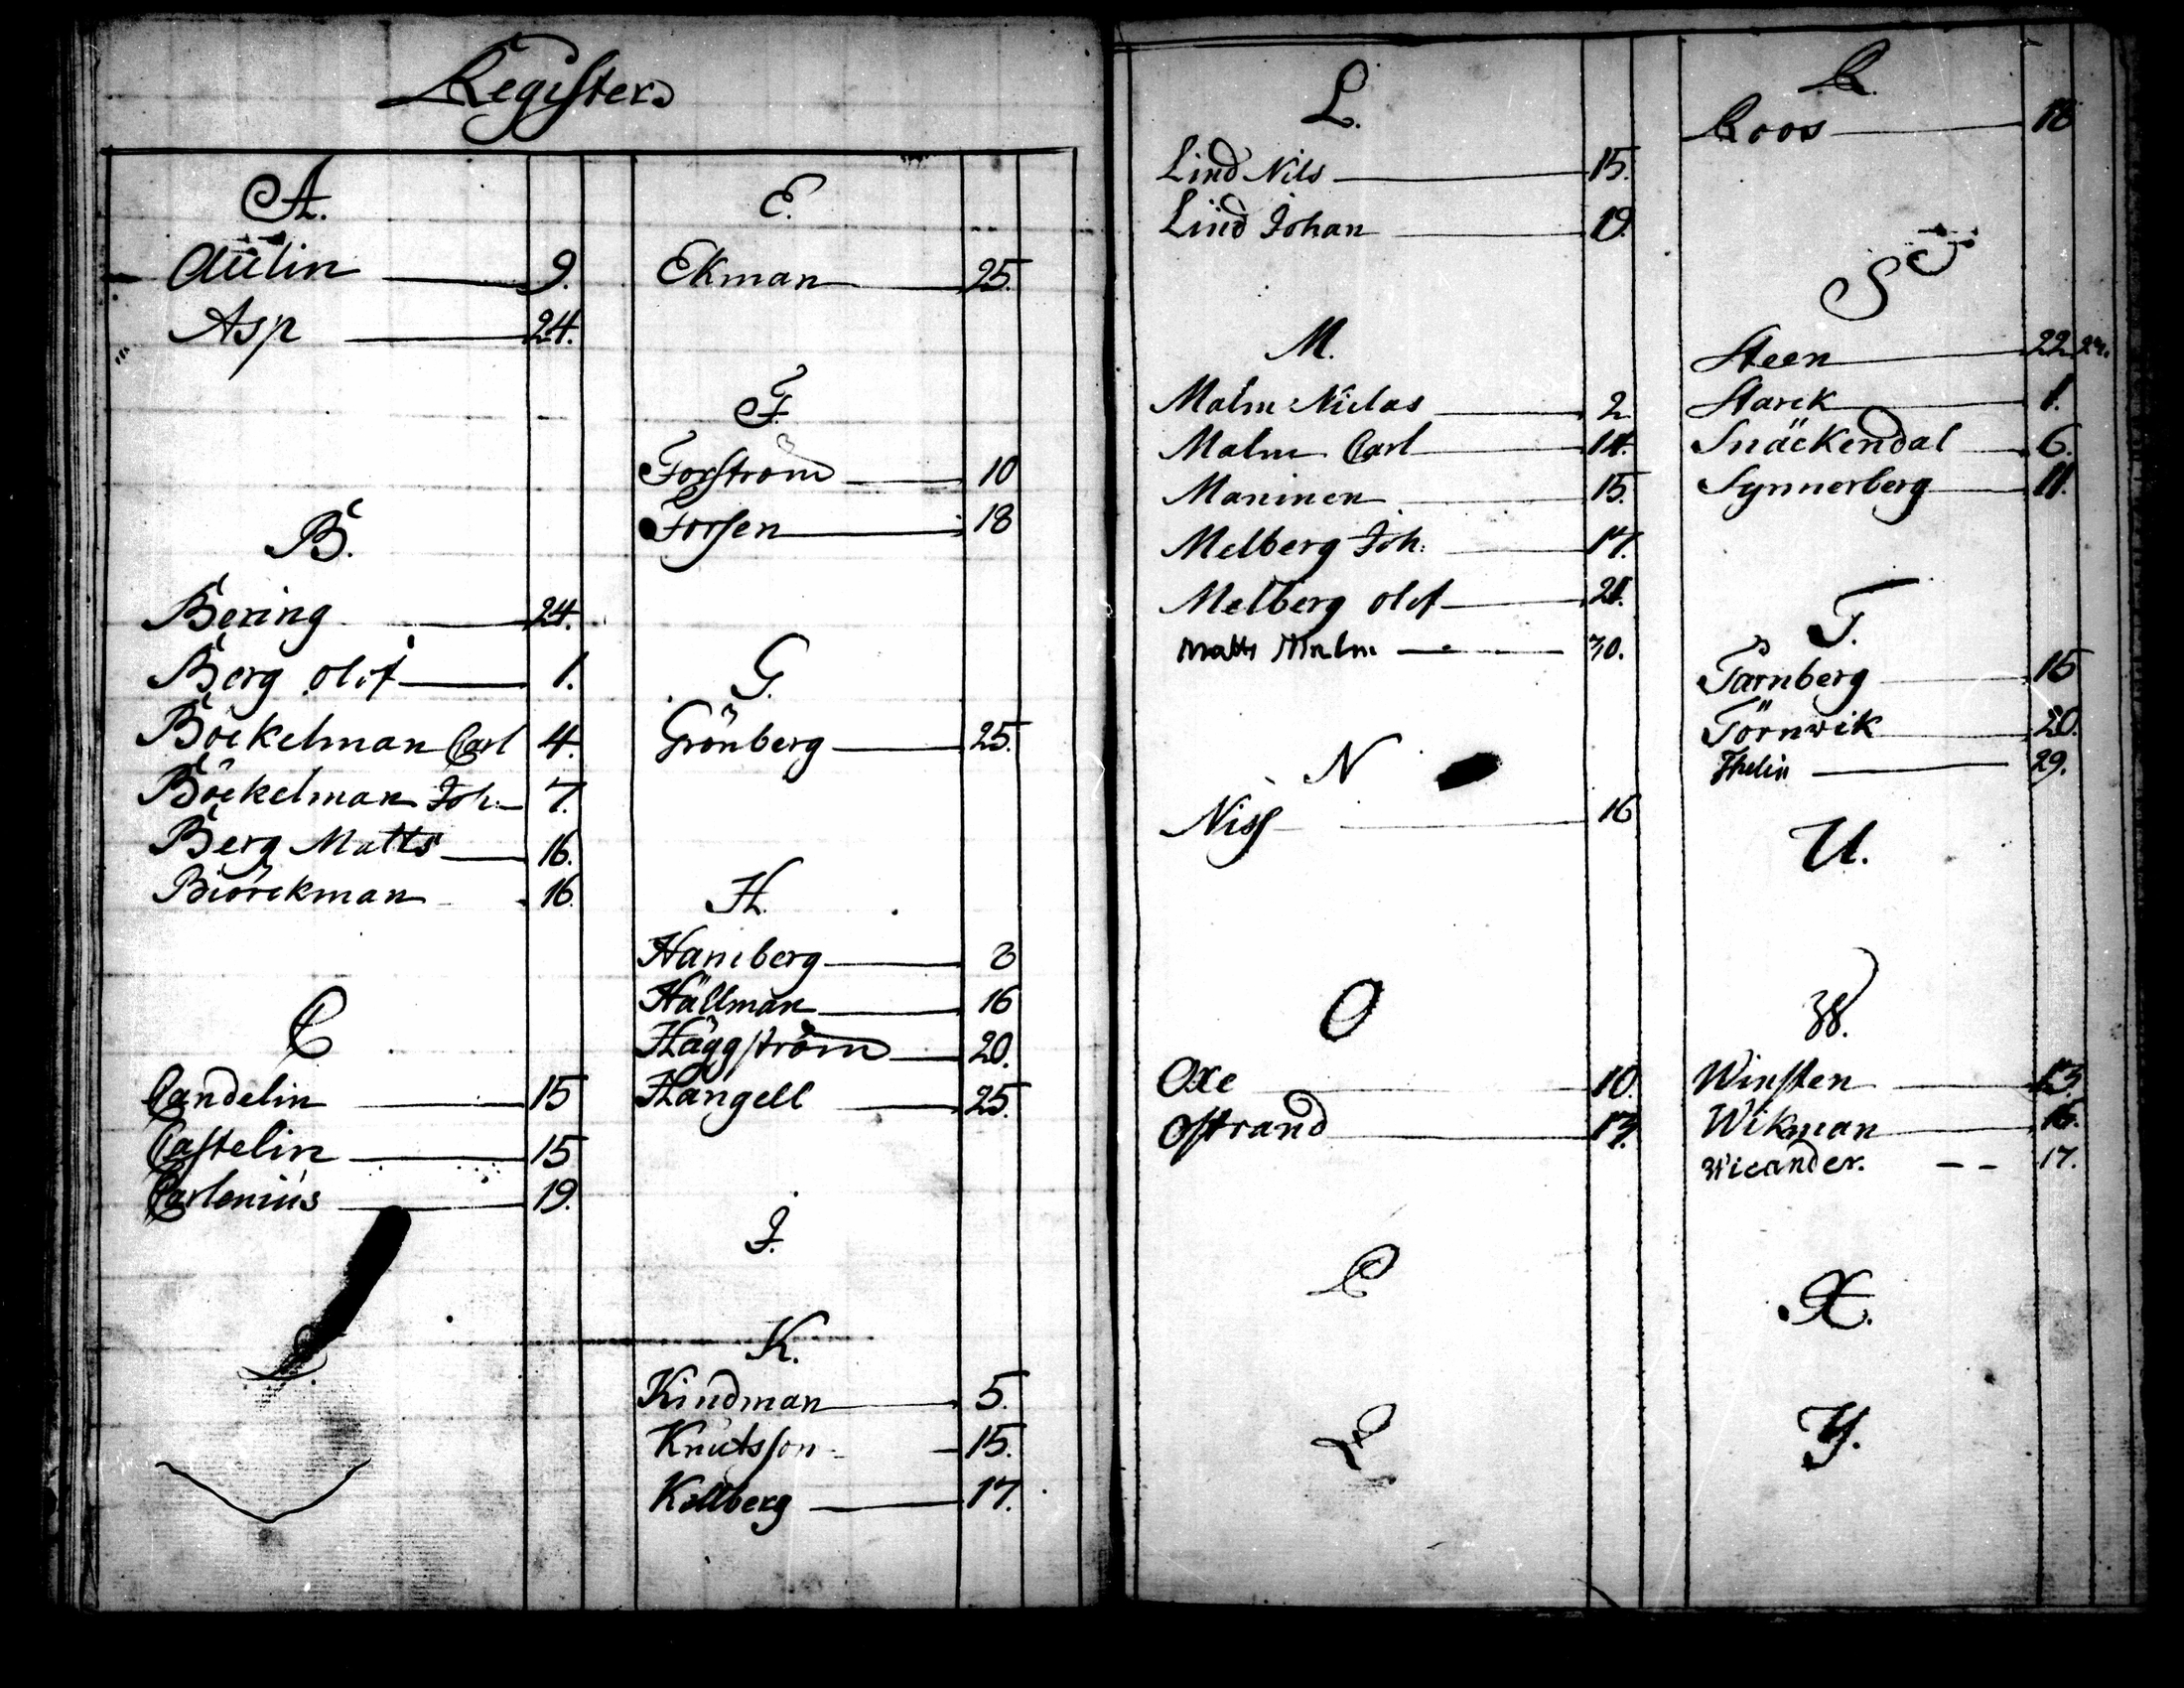 Register
A.
Aulin 9.
Asp 24.
B.
Bering 24.
Berg olof 1.
Böckelman Carl 4.
Böckelman Joh. 7.
Berg Matts 16.
Biörckman 16.
C
Candelin 15
Castelin 15
Carlenius 19.
E.
Ekman 25.
F.
Forström 10
Forssen 18
G.
Grönberg 25.
H.
Hamberg 8
Hällman 16
Häggström 20.
Hangell 25.
J.
K.
Kindman 5.
Knutsson 15.
Kellberg 17.
L.
Lind Nils 15.
Lind Johan 19.
M.
Malm Niclas 2
Malm Carl 14.
Maninen 15.
Melberg Joh. 17.
Melberg olof 21.
Matts Malm 30.
N
Niss 16
O
Oxe 10.
Ostrand 17.
P
R.
Roos 18
S
Steen 22. 24.
Starck 1.
Snäckendal 6.
Synnerberg 11.
T.
Tärnberg 15
Törnwik 20.
Thelin 29.
U.
W.
Winsten 13.
Wikman 16.
Wicander. 17.
X.
Y.